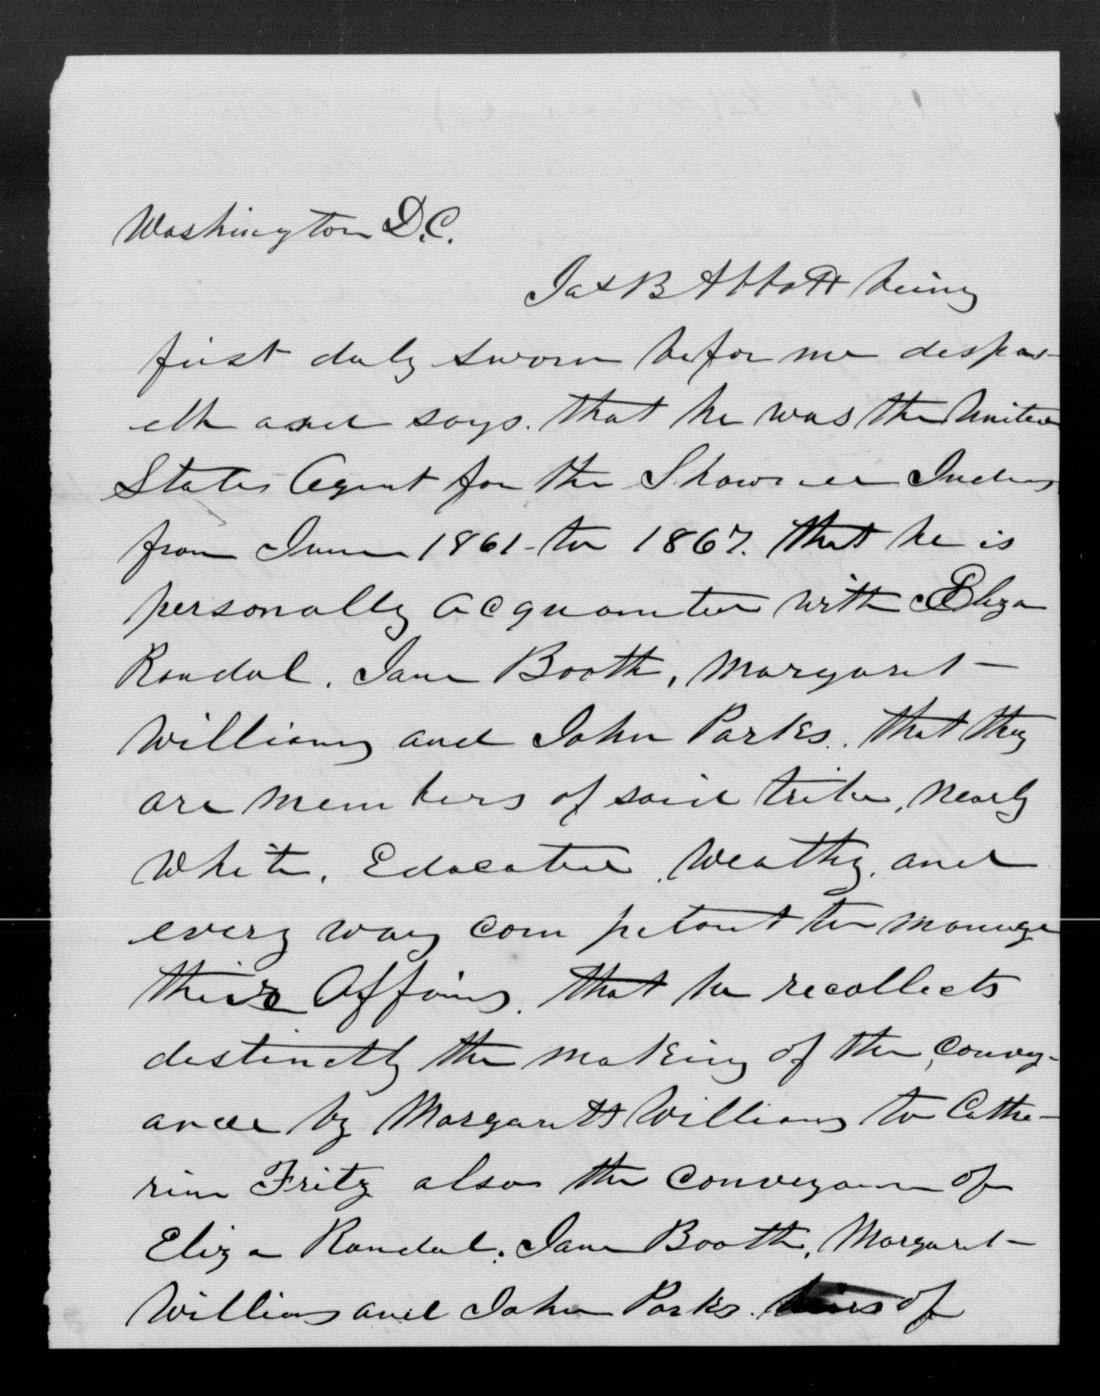 Washington D.C.
Jas B Abbott being
first duly sworn before me despos-
eth and says. that he was the United
States Agent for the Shawnee Indians
from June 1861 to 1867. that he is
personally acquainted with Eliza
Randal. Jane Booth, Margaret
Williams and John Parks. that they
are members of said tribe, nearly
White, Educated, Wealthy, and
every way competant to manage
their Affairs. that he recollects
destinctly the making of the convey-
ance by Margarett Williams to Cathe-
rine Fritz also the conveyance of
Eliza Randal. Jane Booth, Margaret
Williams and John Parks. heirs of